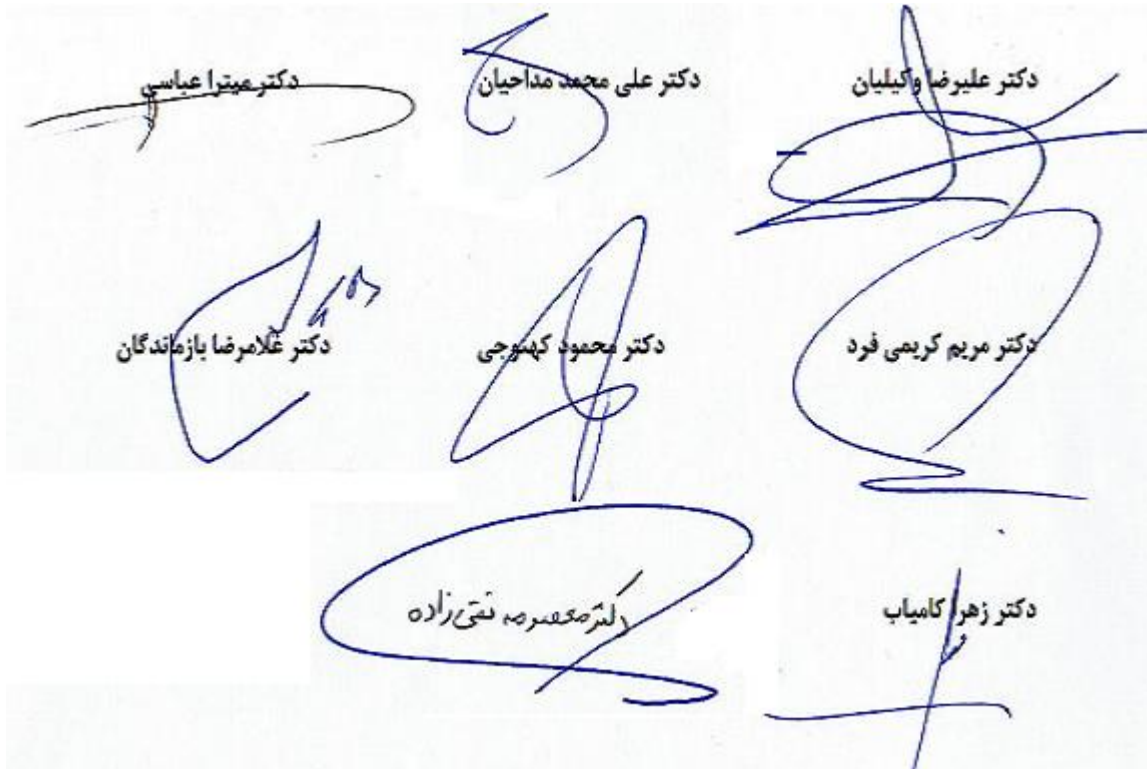 دکتر علیرضا وکیلیان
دکتر علی محمد مداحیان
دکتر میترا عباسی
دکتر مریم کریمی فرد
دکتر محمود کهنوجی
دکتر غلامرضا بازماندگان
دکتر زهرا کامیاب
دکتر معصومه نقی زاده